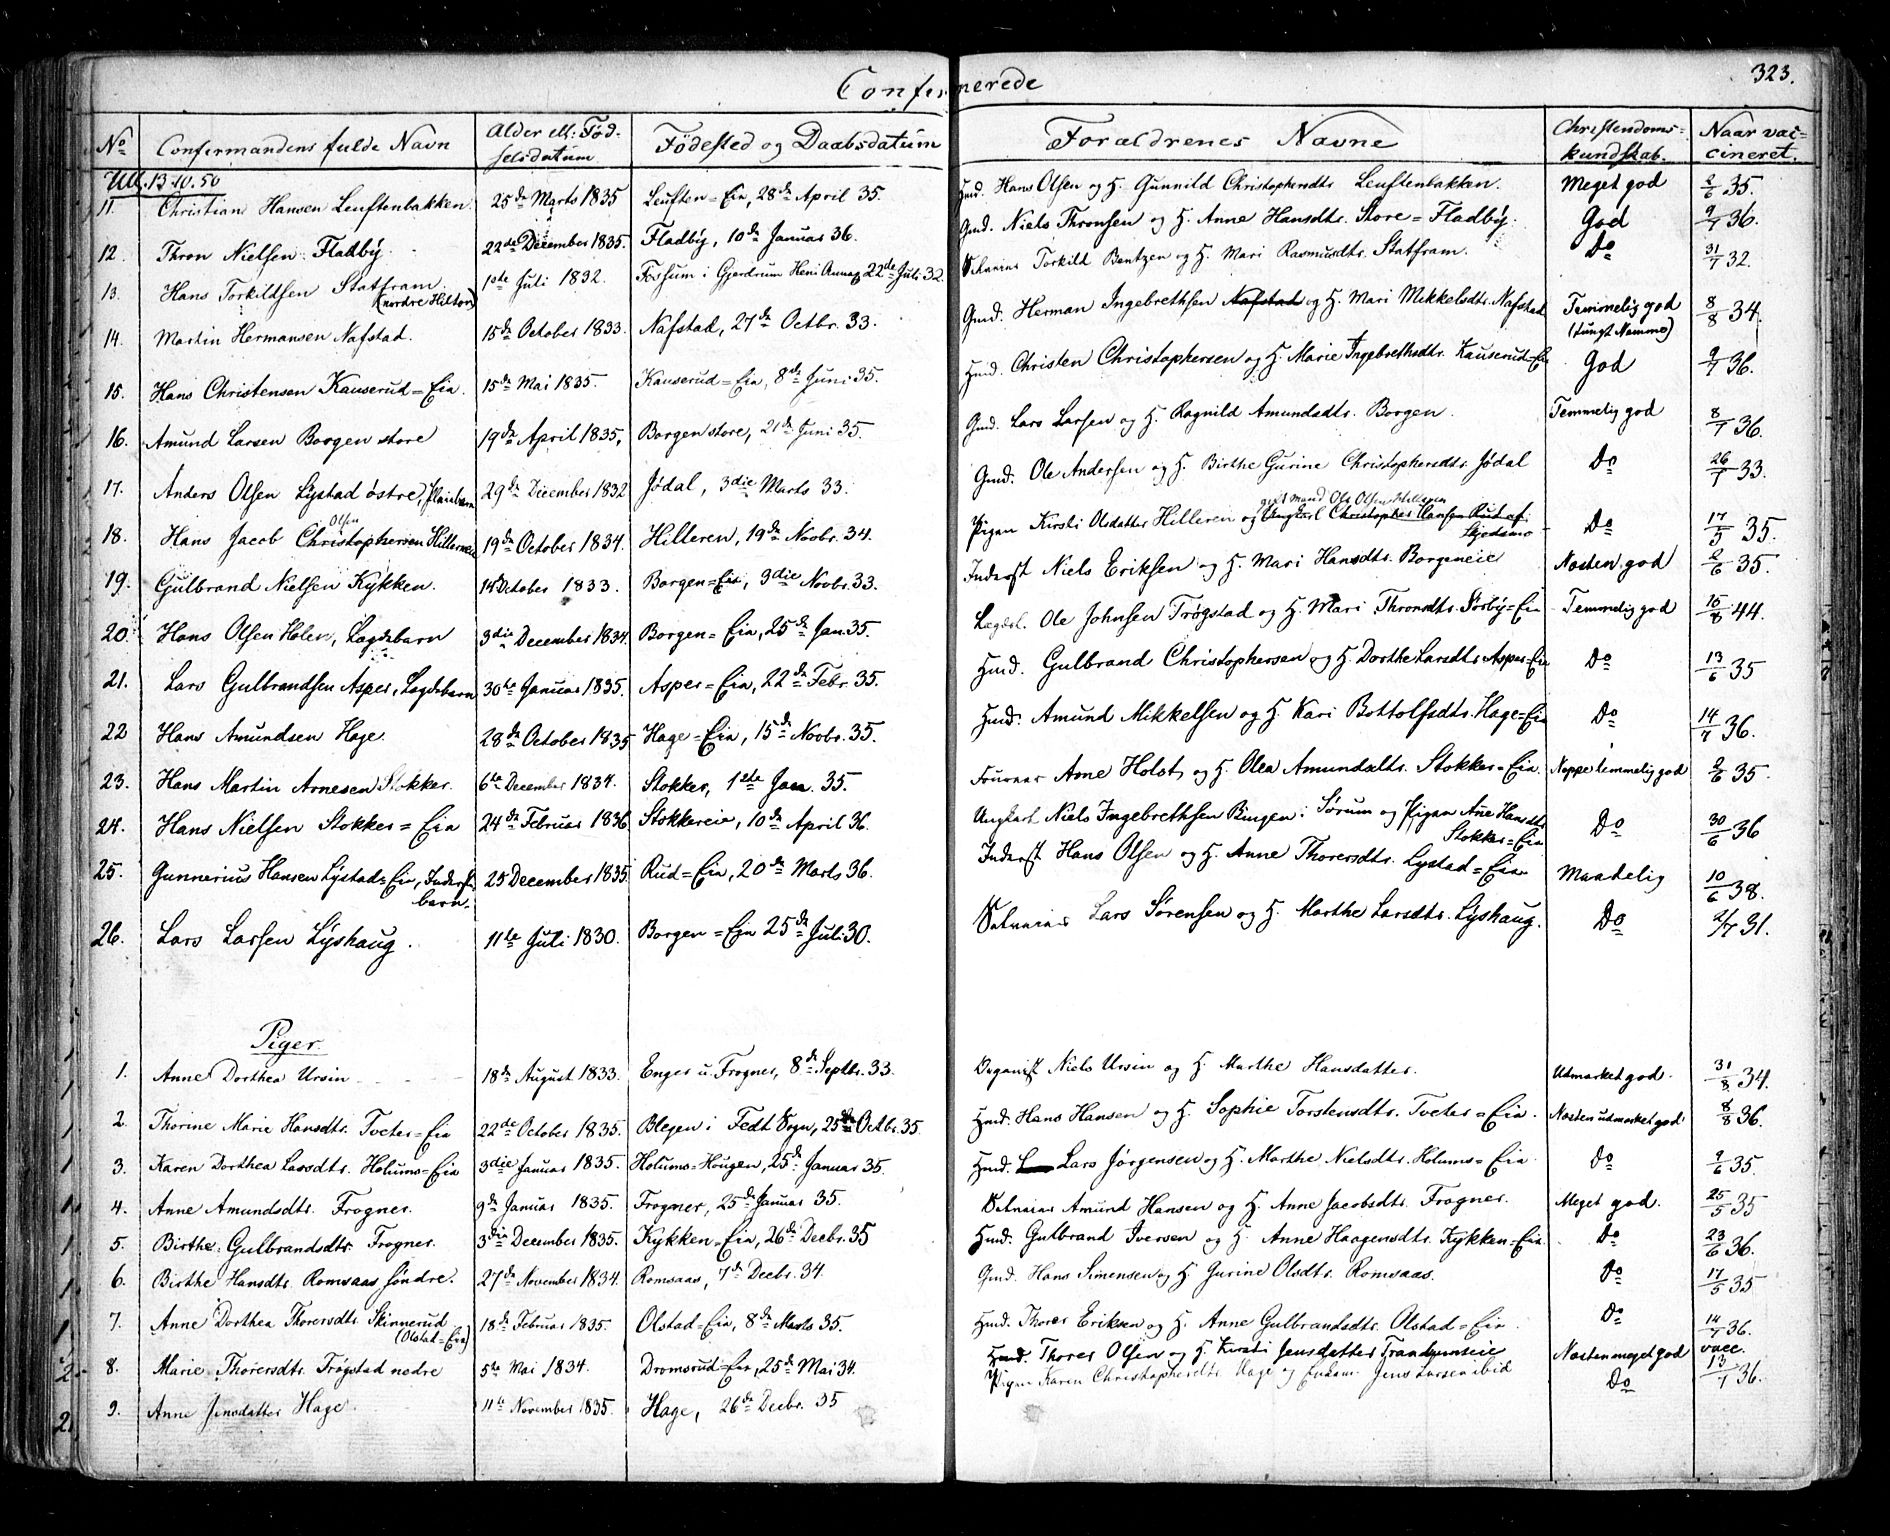 Confirmerede
323.
No Confirmandens fulde Navn Alder ell. Fødselsdatum Fødested og Daabsdatum Forældrenes Navne Christendomskundskab. Naar vaccineret.
Ull. 13-10-50
11. Christian Hansen Leuftenbakken 25de Marts 1835 Leuften=Eia, 28de April 35. Hmd. Hans Olsen og H. Gunnild Christophersdtr Leuftenbakken. Meget god 2/6 35.
12. Thron Nielsen Fladbÿ 22de December 1835. Fladbÿ, 10de Januar 36. Gmd. Niels Thronsen og H. Anne Hansdtr. Store=Fladbÿ. God 9/7 36.
13. Hans Torkildsen Statfram (nordre Hilton) 1ste Juli 1832. Fossum i Gjerdrum 22de Juli 32. Torkild Bentzen og H. Mari Rasmusdtr. Statfram. Do 31/7 32.
14. Martin Hermansen Nafstad. 15de October 1833. Nafstad, 27de Octbr. 33. Gmd. Herman Ingebrethsen Nafstad og H. Mari Mikkelsdtr. Nafstad Temmelig god (tungt Nemme) 8/8 34.
15. Hans Christensen Kauserud=Eia. 15de Mai 1835. Kauserud=Eia, 8de Juni 35. Hmd. Christen Christophersen og H. Marie Ingebrethsdtr. Kauserud=Eia God 9/7 36.
16. Amund Larsen Borgen store 19de April 1835. Borgen store, 21de Juni 35. Gmd. Lars Larsen og H. Ragnild Amundsdtr. Borgen. Temmelig god 8/7 36.
17. Anders Olsen Lÿstad østre, Pleiebarn 29de December 1832 Jødal, 3die Marts 33. Gmd. Ole Andersen og H. Birthe Gurine Christophersdtr. Jødal Do 26/7 33.
18. Hans Jacob Christophersen Olsen Hilleren 19de October 1834. Hilleren, 19de Novbr. 34. Pigen Kirsti Olsdatter Hilleren og Ungkarl Christopher Hansen Rud af Skedsmo gift Mand Ole Olsen Do 17/5 35.
19. Gulbrand Nielsen Kÿkken. October 1833. Borgen=Eia, 3die Novbr. 33. Inderst Niels Eriksen og H. Mari Hansdtr. Borgeneie Næsten god 2/6 35.
20. Hans Olsen Holen, Lægdsbarn 3die December 1834. Borgen=Eia, 25de Jan. 35. Lægdsl. Ole Johnsen Trøgstad og H. Mari Thronsdtr. Sørbÿ=Eia Temmelig god 15/8 44.
21. Lars Gulbrandsen Asper, Lægdsbarn 30te Januar 1835. Asper=Eia, 22de Febr. 35. Hmd. Gulbrand Christophersen og H. Dorthe Larsdtr. Asper=Eia Do 13/6 35
22 Hans Amundsen Hage. 28de October 1835 Hage=Eia, 15de Novbr. 35. Hmd. Amund Mikkelsen og H. Kari Bottolfsdtr. Hage=Eia Do 14/7 36.
23. Hans Martin Arnesen Stokker. 6te December 1834. Stokker, 1ste Jan. 35. Arne Holst og H. Olea Amundsdtr. Stokker=Eia. Neppe temmelig god 2/6 35.
24. Hans Nielsen Stokker=Eia 24de Februar 1836 Stokkereie, 10de April 36. Ungkarl Niels Ingebrethsen Bingen i Sørum og Pigen Ane Hansdtr Stokker=Eia Do 30/6 36
25. Gunnerius Hansen Lÿstad=Eia, Inderstbarn. 25 December 1835. Rud=Eia, 20de Marts 36. Inderst Hans Olsen og H. Anne Thorersdtr. Lystad=Eia Maadelig 10/6 38.
26. Lars Larsen Lÿshaug. 11te Juli 1830. Borgen=Eje 25de Juli 30. Lars Sørensen og H. Marthe Larsdtr. Lÿshaug. Do 2/7 31.
Piger.
1. Anne Dorthea Ursin 18de August 1833. Enger u. Frogner, 8de Septbr. 33. Organist Niels Ursin og H. Marthe Hansdatter. Udmærket god. 31/8 34.
2. Thorine Marie Hansdtr. Tveter=Eia 22de October 1835. Blegen i Fedt Sogn, 25de Octbr. 35. Hmd. Hans Hansen og H. Sophie Torstensdtr. Tveter=Eia. Næsten udmærket god 8/8 36.
3. Karen Dorthea Larsdtr. Holums=Eia 3die Januar 1835. Holums=Hougen, 25de Januar 35. Hmd. Lars Jørgensen og H. Marthe Nielsdtr. Holums=Eia. Do 9/6 35.
4. Anne Amundsdtr. Frogner. 9de Januar 1835. Frogner, 25de Januar 35. Amund Hansen og H. Anne Jacobsdtr. Frogner. Meget god. 25/5 35
5. Birthe Gulbrandsdtr. Frogner. 3die December 1835. Kÿkken=Eia, 26de Decbr. 35 Hmd. Gulbrand Iversen og H. Anne Haagensdtr. Kÿkken=Eia. Do 23/6 36.
6. Birthe Hansdtr. Romsaas søndre. 27de November 1834. Romsaas, 7de Decbr. 34. Gmd. Hans Simensen og H. Gurine Olsdtr. Romsaas. Do 17/5 35
7. Anne Dorthea Thorersdtr. Skinnerud (Olstad=Eia) 18de Februar 1835. Olstad=Eia, 8de Marts 35. Hmd. Thorer Eriksen og H. Anne Gulbrandsdtr. Olstad=Eia. Do 14/7 36.
8. Marie Thorersdtr. Trøgstad nedre 5te Mai 1834. Dromsrud=Eia, 25de Mai 34. Hmd. Thorer Olsen og H. Kirsti Jensdatter Trandumseie Næsten meget god vacc.
9. Anne Jensdatter Hage. 11te November 1835. Hage, 26de Decbr. 35 Pigen Karen Christophersdtr. Hage og Enkem. Jens Larsen ibid Do 13/7 36.